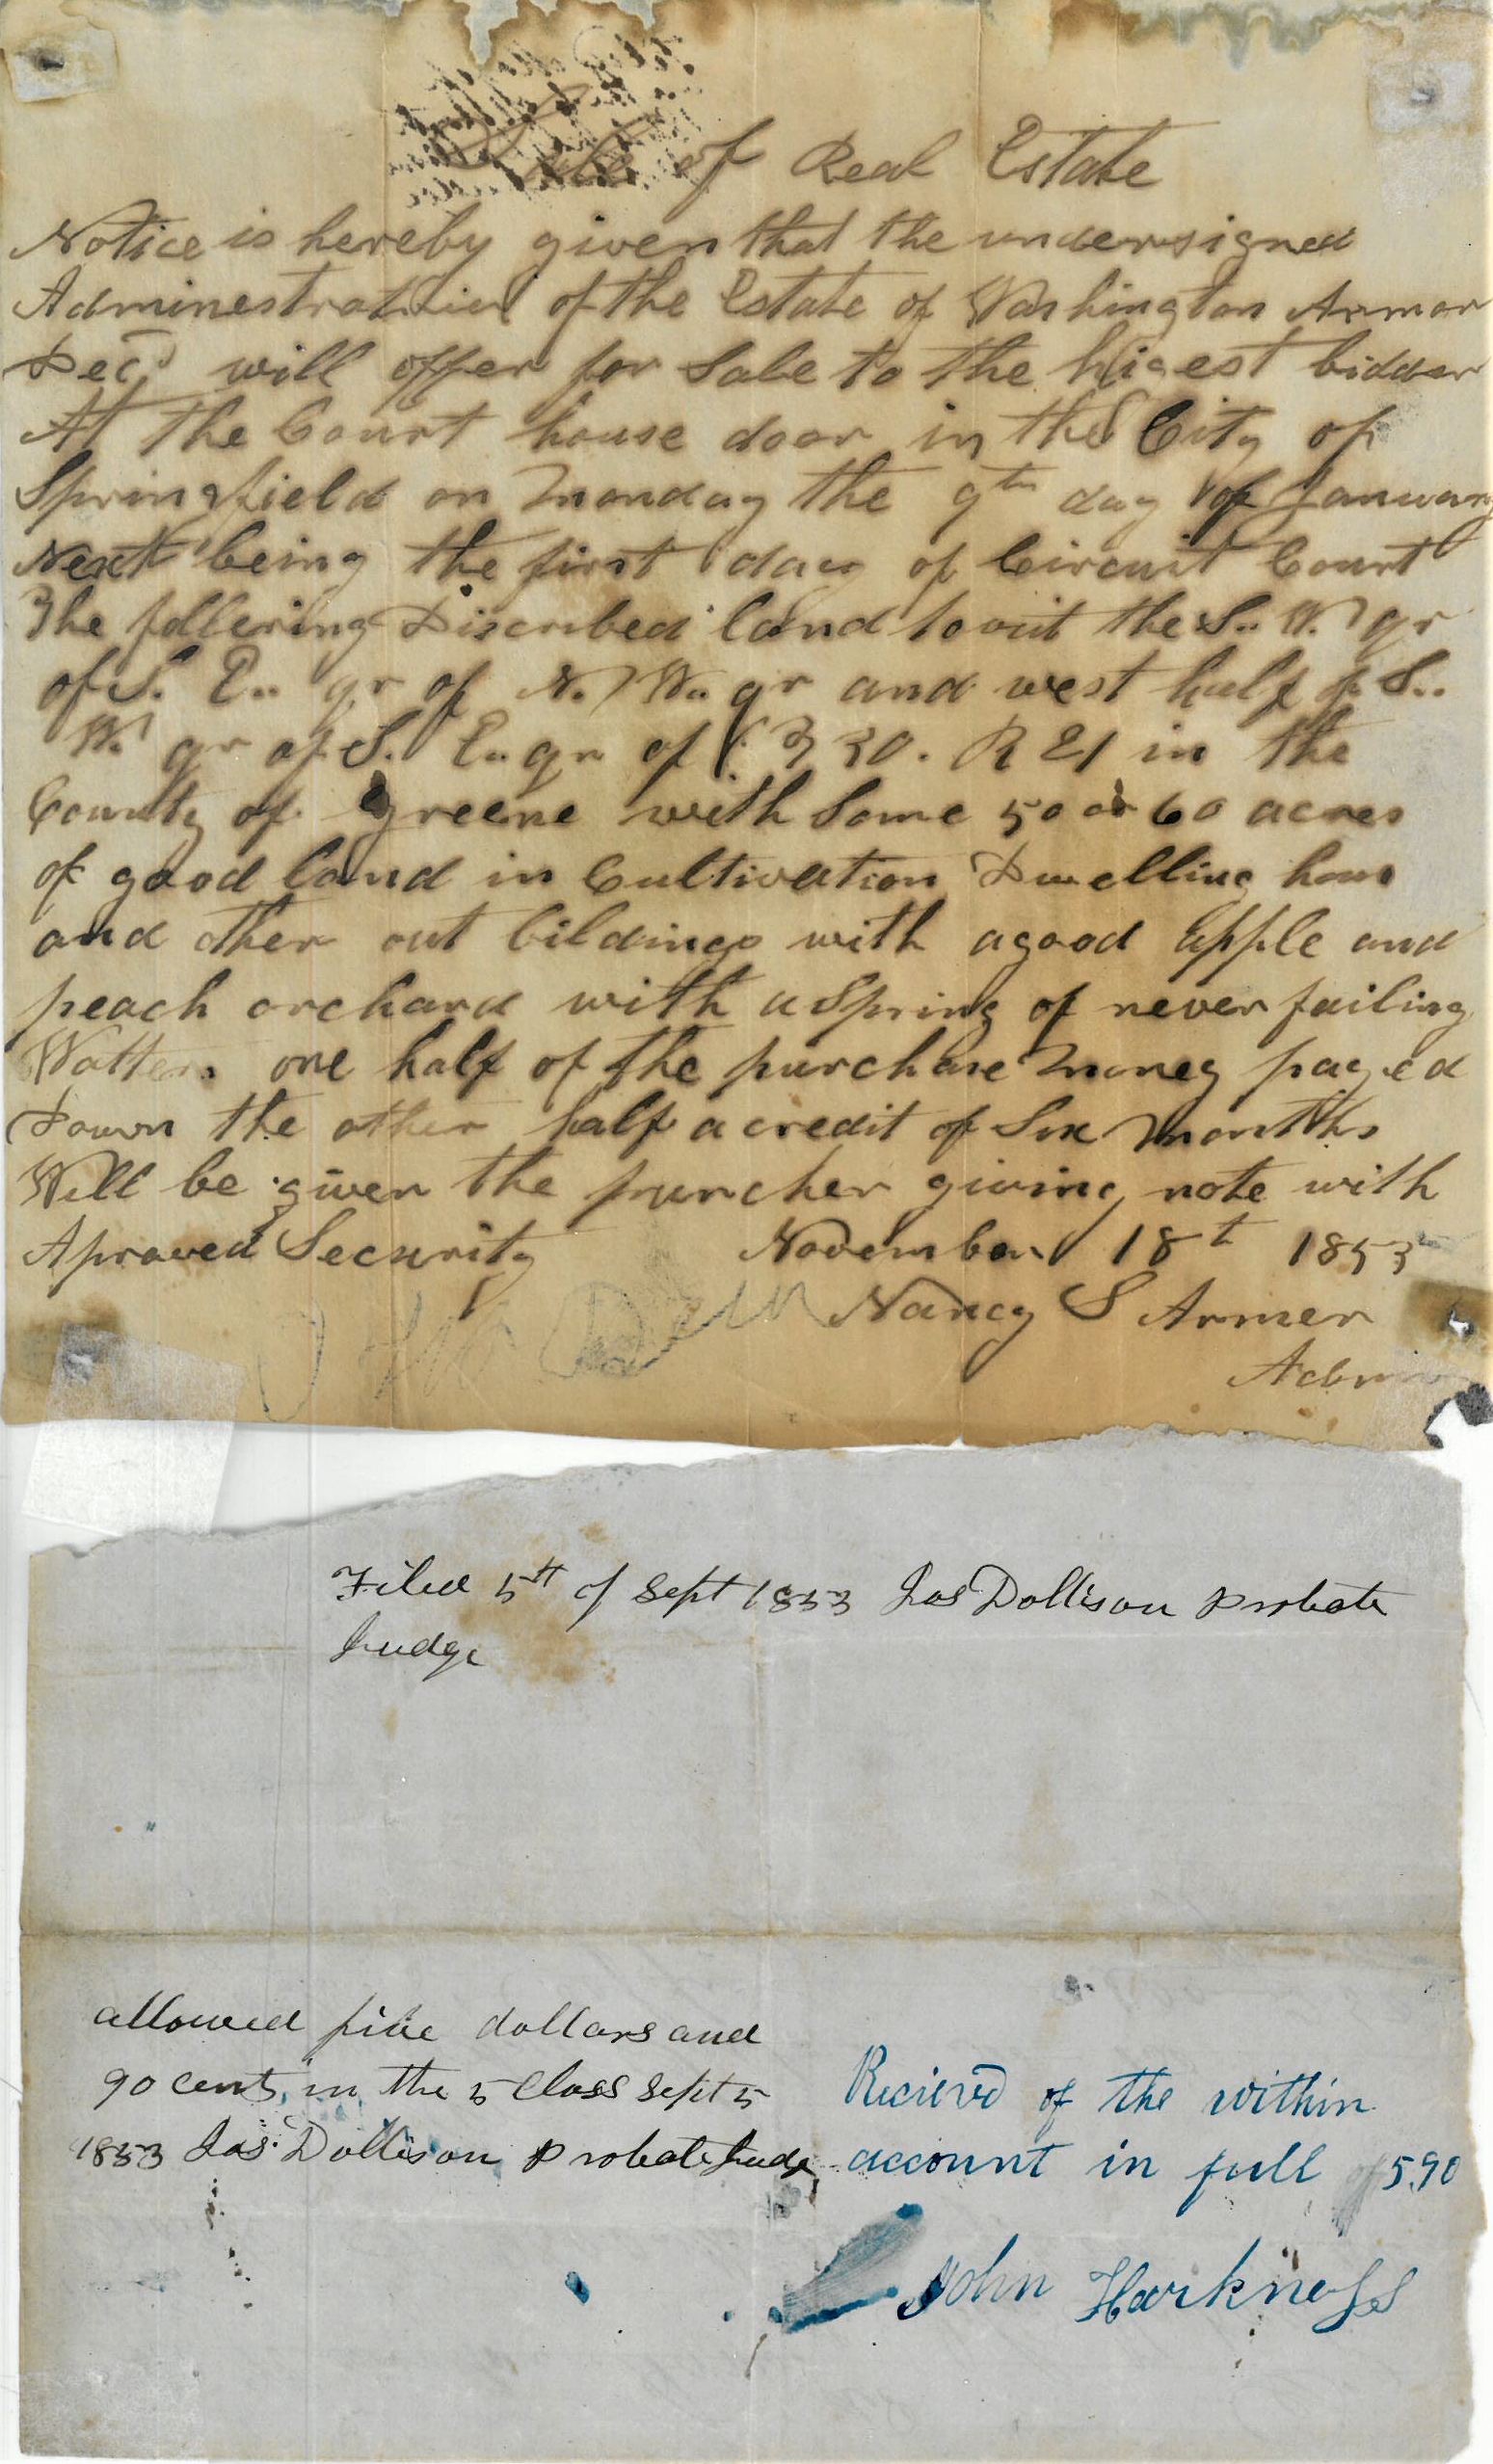 Sale of Real Estate
Notice is hereby given that the undersigned
of the Estate of Washington Armor
Decd will offer for Sale to the higest bidder
At the Court house door in the City of
Springfield on Monday the 9th day of January
Next being the first day of Circuit Court
The follering Discribed land towit the S.. W. qr
of S. E.. qr of N. W.. qr and west half of S..
W. qr of S. E.. qr of 30. R 21 in the
County of greene with Some 50 or 60 acres
of good land in Cultivation Dwelling hous
and other out bildings with a good apple and
peach orchard with a Spring of never failing
Watter. one half of the purchase Money payed
Down the other half a credit of Six Months
Will be given the puncher giving note with
Aproved Security November 18th 1853
Nancy S Armer
Filed 5th of Sept 1853 Jas Dollison Probate
Judge
allowed five dollars and
90 cents in the 5 Class Sept 5
1853 Jas. Dollison Probate Judge
Recieved of the within
account in full of 5.90
John Harkness